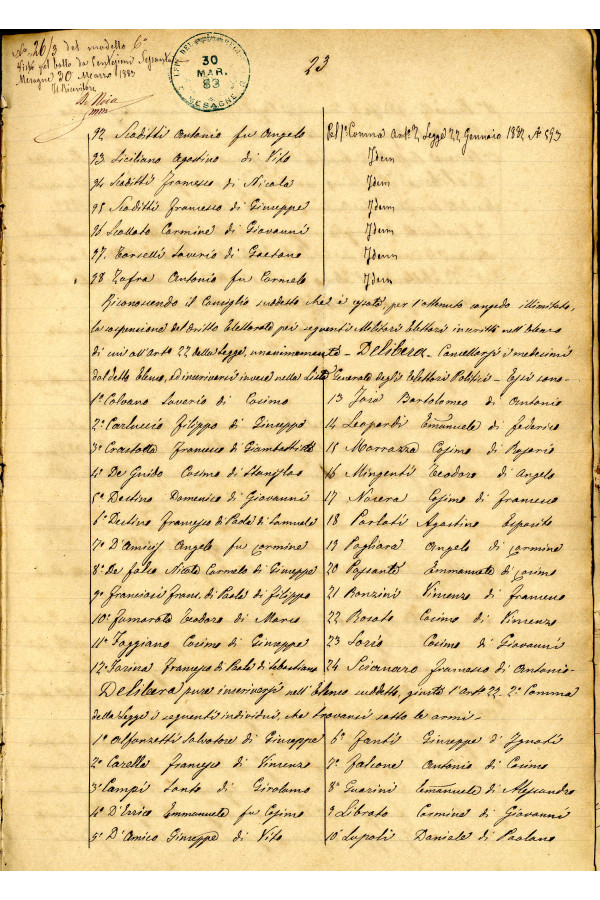 No. 26/3 del modello 6°
Visto pel bollo da Centesimi Sessanta
Mesagne 30 Marzo 1883
Il Ricevitore
UFF. DEL REGISTRO
30
MAR.
83
MESAGNE
23
92 Scoditti Antonio fu Angelo
Pel 1° Comma Arto. 2, Legge 22 Gennaio 1882 N° 593
93 Siciliano Agostino di Vito
Idem
94 Scoditti Francesco di Nicola
Idem
95 Scoditti Francesco di Giuseppe
Idem
96 Scollato Carmine di Giovanni
Idem
97 Torselli Saverio di Gaetano
Idem
98 Zofra Antonio fu Carmelo
Idem
Riconoscendo il Consiglio suddetto che è cessata, per l'ottenuto congedo illimitato,
la sospensione del dritto Elettorale pei seguenti Militari Elettori inscritti nell'Elenco
di cui all'Arto. 22 della Legge, unanimemente - Delibera - Cancellarsi i medesimi
dal detto Elenco, ed inscriversi invece nella Lista Generale degli Elettori Politici - Essi sono -
1° Coluano Saverio di Cosimo
13 Ioia Bartolomeo di Antonio
2° Carluccio Filippo di Giuseppe
14 Leopardi Emanuele di Federico
3° Crastotta Francesco di Giambattista
15 Morrazza Cosimo di Rosario
4° De Guido Cosimo di Stanislao
16 Mingenti Teodoro di Angelo
5° Destino Domenico di Giovanni
17 Nocera Cosimo di Francesco
6° Destino Francesco di Paola di Samuele
18 Parlati Agostino Esposito
7° D'Amicis Angelo fu Carmine
19 Pagliara Angelo di Carmine
8° De Falco Nicola Carmelo di Giuseppe
20 Passante Emmanuele di Cosimo
9° Franciosi Franc. di Paola di Filippo
21 Ronzini Vincenzo di Francesco
10° Fumarola Teodoro di Marco
22 Rosato Cosimo di Vincenzo
11° Faggiano Cosimo di Giuseppe
23 Sozio Cosimo di Giovanni
12° Farina Francesco di Paola di Sebastiano
24 Scianaro Francesco di Antonio -
Delibera pure inscriversi nell'Elenco suddetto, giusta l'Arto. 22. 2° Comma
della Legge i seguenti individui, che trovansi sotto le armi -
1° Alfonzetti Salvatore di Giuseppe
6° Fanti Giuseppe d'Ignoti
2° Carella Francesco di Vincenzo
7° Falcone Antonio di Cosimo
3° Campi Santo di Girolamo
8° Guarini Emanuele di Alessandro
4° D'Errico Emmanuele fu Cosimo
9 Librato Carmine di Giovanni
5° D'Amico Giuseppe di Vito
10° Lupoli Daniele di Paolano